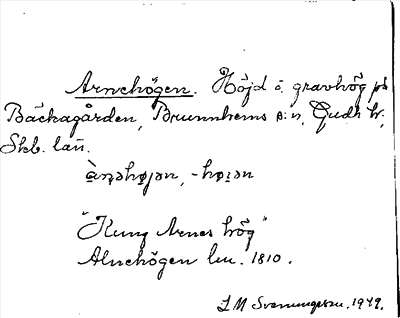 Arnehögen. Höjd o. gravhög på
Bäckagården, Brunnhems s:n, Gudh. hr,
Skb. län.
"Kung Arnes hög"
Alnehögen lm. 1810.
J M Svenungsson. 1949.